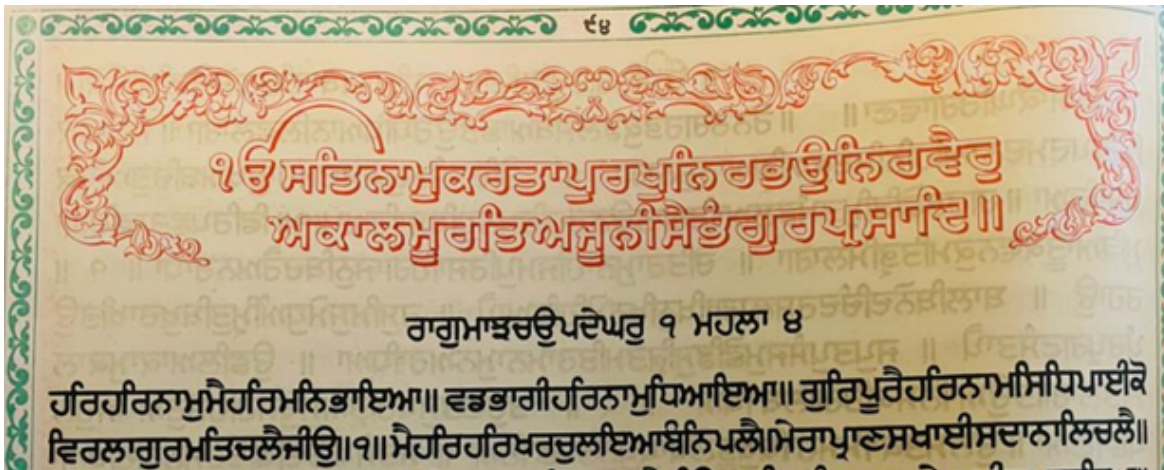 ੯੪
ੴਸਤਿਨਾਮੁਕਰਤਾਪੁਰਖੁਨਿਰਭਉਨਿਰਵੈਰੁ
ਅਕਾਲਮੂਰਤਿਅਜੂਨੀਸੈਭੰਗੁਰਪ੍ਰਸਾਦਿ॥
ਰਾਗੁਮਾਝਚਉਪਦੇਘਰੁ ੧ ਮਹਲਾ ੪
ਹਰਿਹਰਿਨਾਮੁਮੈਹਰਿਮਨਿਭਾਇਆ॥ ਵਡਭਾਗੀਹਰਿਨਾਮੁਧਿਆਇਆ॥ ਗੁਰਿਪੂਰੈਹਰਿਨਾਮਸਿਧਿਪਾਈਕੋ
ਵਿਰਲਾਗੁਰਮਤਿਚਲੈਜੀਉ॥੧॥ਮੈਹਰਿਹਰਿਖਰਚੁਲਇਆਬੰਨਿਪਲੈ॥ਮੇਰਾਪ੍ਰਾਣਸਖਾਈਸਦਾਨਾਲਿਚਲੈ॥